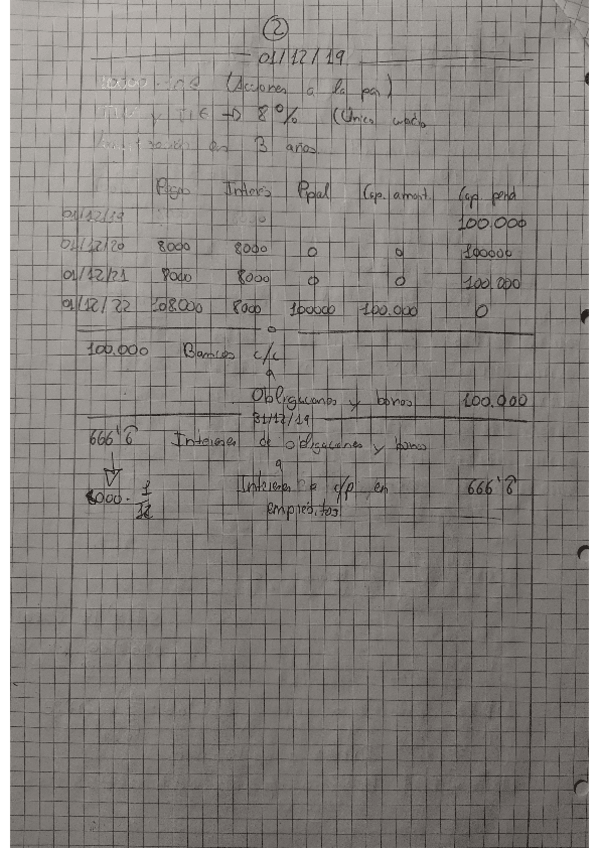 2
01/12/19
(Acciones a la par)
y TIE → 8% (Único
en 3 años.
Pago Interés Ppal Cap. amort. Cap. pend
01/12/19 100.000
01/12/20 8000 8000 0 0 100000
01/12/21 8000 8000 0 0 100.000
01/12/22 108.000 8000 100000 100.000 0
100.000 Bancos c/c
a
Obligaciones y bonos 100.000
31/12/19
666'6̂ Intereses de obligaciones y bonos
a
8000 · 1/12 Intereses a c/p en 666'6̂
empréstitos